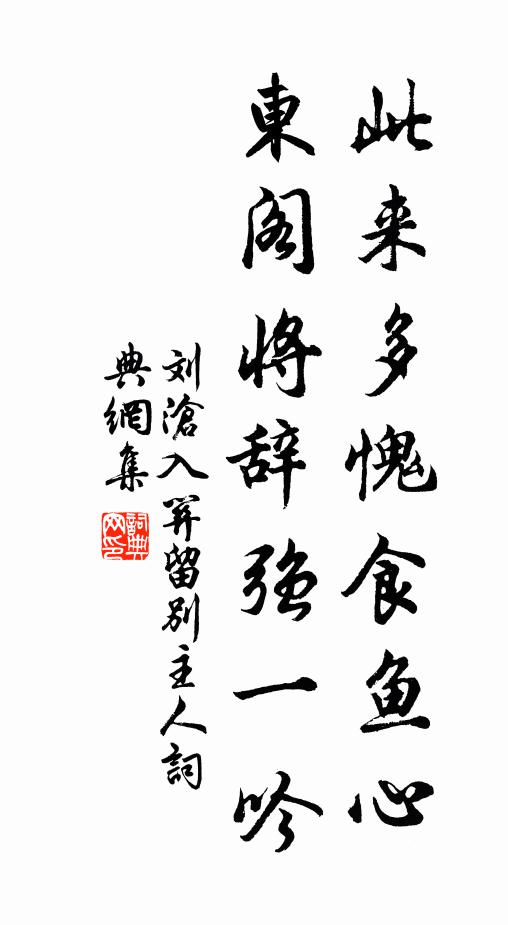 此来多愧食鱼心
東阁将辞强一吟
刘滄入关留别主人詞
典網集
詞典
网印